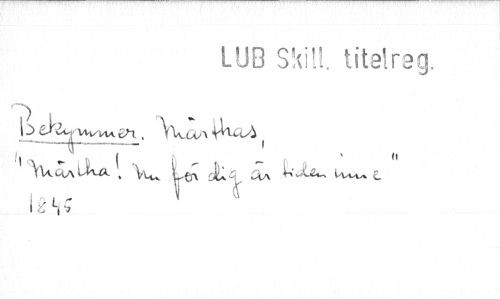 LUB Skill. titelreg.
Bekymmer. Märthas,
"Märtha! Nu för dig är tiden inne"
1845